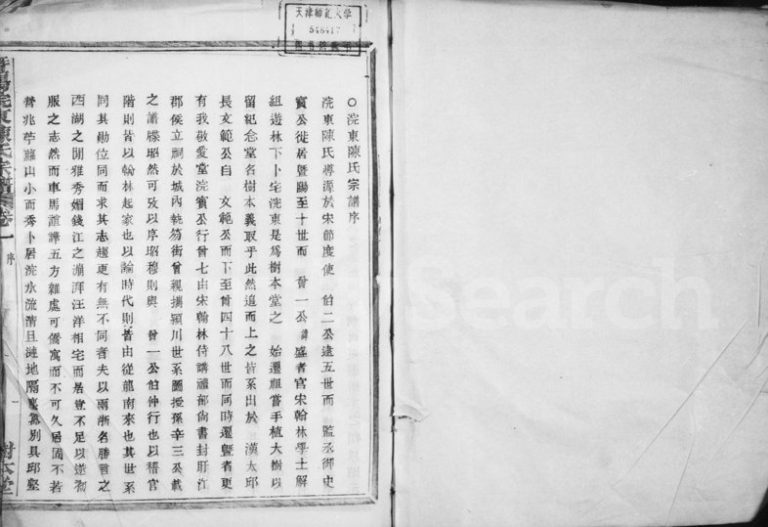 天津師範大学
548417
图書館藏書
〇浣東陳氏宗譜序
浣東陳氏導源於宋節度使 飴二公遠五世而 監丞御史
賓公徙居暨陽至十世而 曾一公諱盛者官宋翰林學士解
組遊林下卜宅浣東是爲樹本堂之 始遷祖嘗手植大樹以
留紀念堂名樹本義取乎此然追而上之皆系出於 漢太邱
長文範公自 文範公而下至曾四十八世而同時遷暨者更
有我敬愛堂浣賓公行曾七由宋翰林侍講禮部尙書封肝江
郡侯立祠於城內執笏街曾親攜潁川世系圖授孫辛三公載
之譜牒昭然可攷以序昭穆則與 曾一公伯仲行也以稽官
階則皆以翰林起家也以論時代則皆由從龍南來也其世系
同其勛位同而求其志趨更有無不同者夫以兩浙名勝言之
西湖之閒雅秀媚錢江之澎湃汪洋相宅而居豈不足以遂初
服之志然而車馬諠譁五方雜處可僑寓而不可久居固不若
苧蘿山小而秀卜居浣水流淸且漣地隔塵氛別具邱壑
暨陽浣東陳氏宗譜 卷一 序
樹本堂
Search